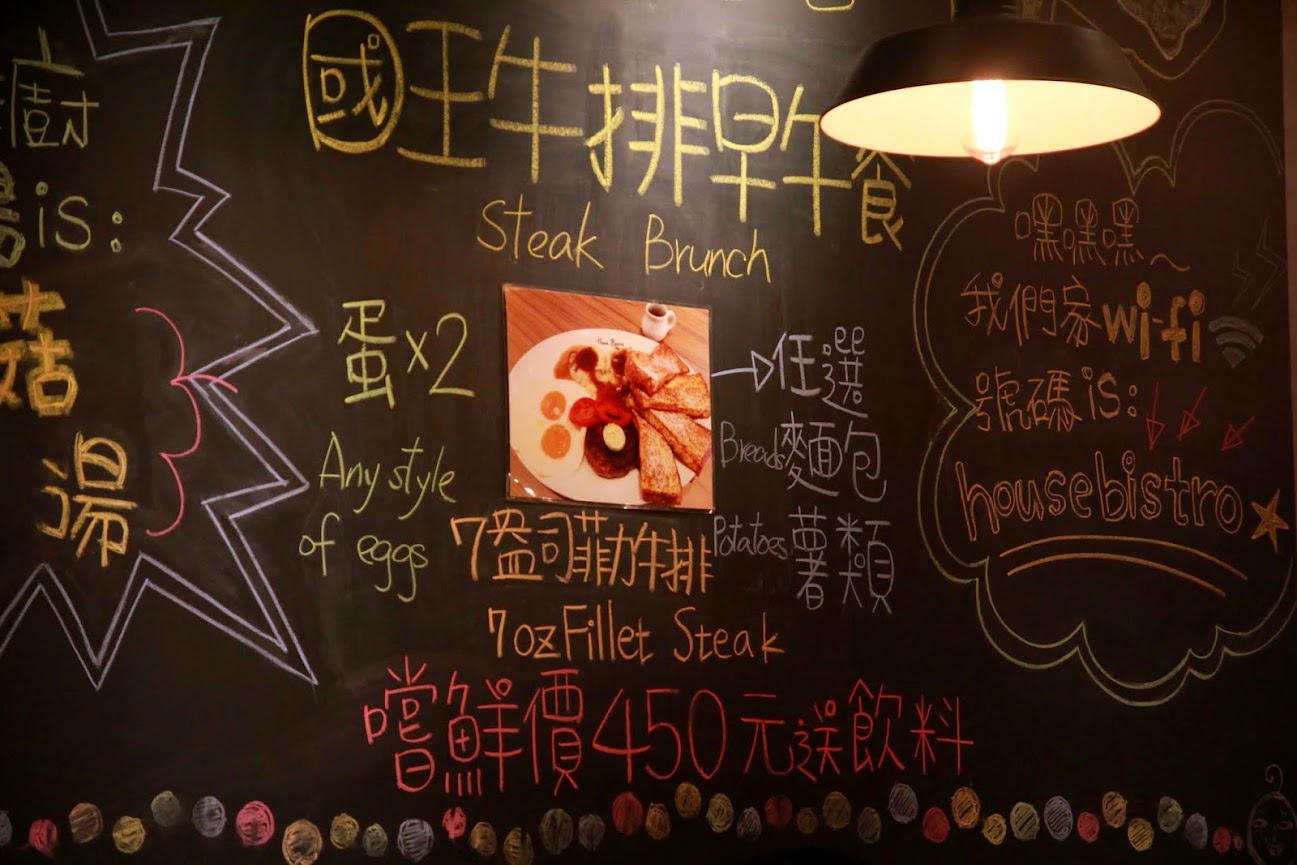 廚
is:
菇
湯
國王牛排早午餐
Steak Brunch
蛋x2
Any style
of eggs
任選
Breads麵包
Potatoes薯類
7盎司菲力牛排
7oz Fillet Steak
嚐鮮價450元送飲料
嘿嘿嘿~
我們家wi-fi
號碼is:
housebistro